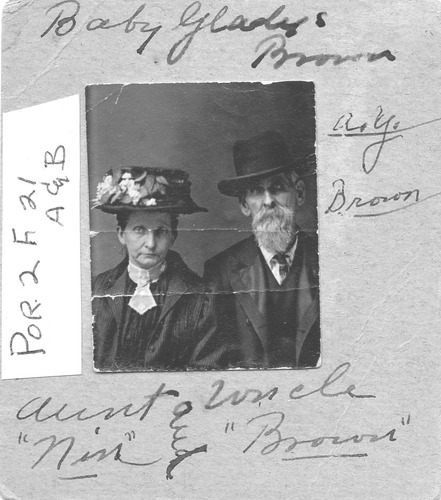 Baby Gladys
Brown
A. Y.
Brown
POR. 2 F 21
A & B
Aunt and Uncle
"Nin" "Brown"